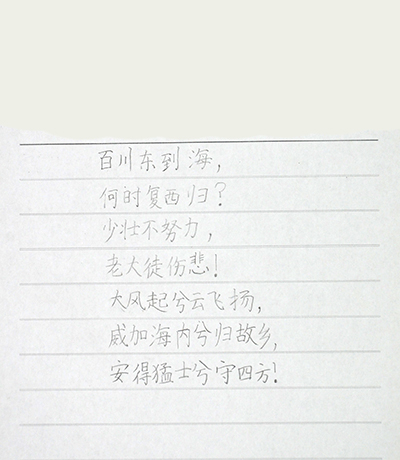 百川东到海，
何时复西归？
少壮不努力，
老犬徒伤悲！
大风起兮云飞扬，
威加海内兮归故乡，
安得猛士兮守四方！